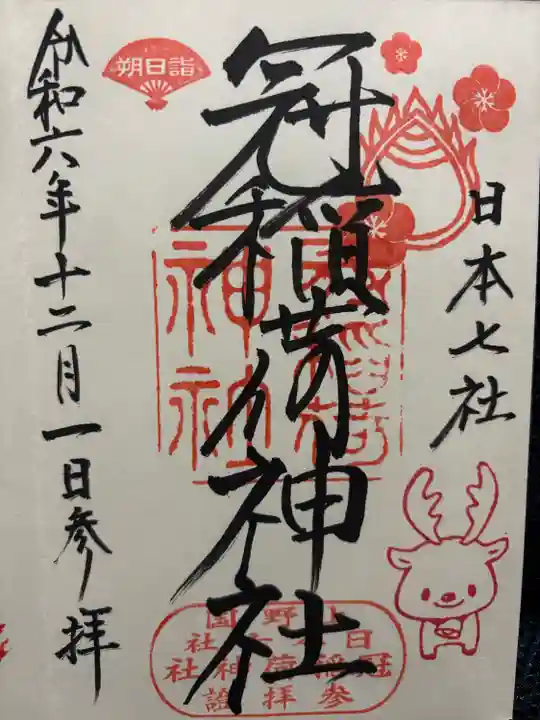 日本七社
冠稲荷神社
令和六年十二月一日参拝
朔日詣
上野國
日本七社
冠稲荷神社
参拝證